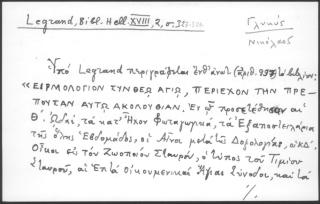 Legrand, Bibl. Hell. XVIII, 2, σ. 323-324
Γλυκύς
Νικόλαος
Ὑπό Legrand περιγράφεται ἐνθ' ἀνωτ. (ἀριθ. 997) τό βιβλίον:
«ΕΙΡΜΟΛΟΓΙΟΝ ΣΥΝ ΘΕΩ ΑΓΙΩ, ΠΕΡΙΕΧΟΝ ΤΗΝ ΠΡΕ-
ΠΟΥΣΑΝ ΑΥΤΩ ΑΚΟΛΟΥΘΙΑΝ. Ἐν ᾧ προσετέθησαν αἱ
Θ'. ᾨδαί, τά κατ' Ἦχον Φωταγωγικά, τά Ἐξαποστειλάρια
τῆς ὅλης Ἑβδομάδος, οἱ Αἶνοι μετά τῆς Δοξολογίας, οἱ ΚΔ'.
Οἶκοι εἰς τόν Ζωοποιόν Σταυρόν, ὁ τύπος τοῦ Τιμίου
Σταυροῦ, αἱ Ἑπτά Οἰκουμενικαί Ἅγιαι Σύνοδοι, καί τά
./.